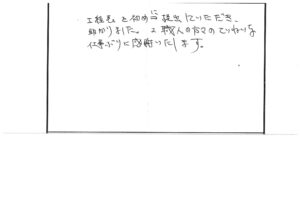 工程も と初めに提出していただき、
助かりました。 職人の方々のていねいな
仕事ぶりに感謝いたします。